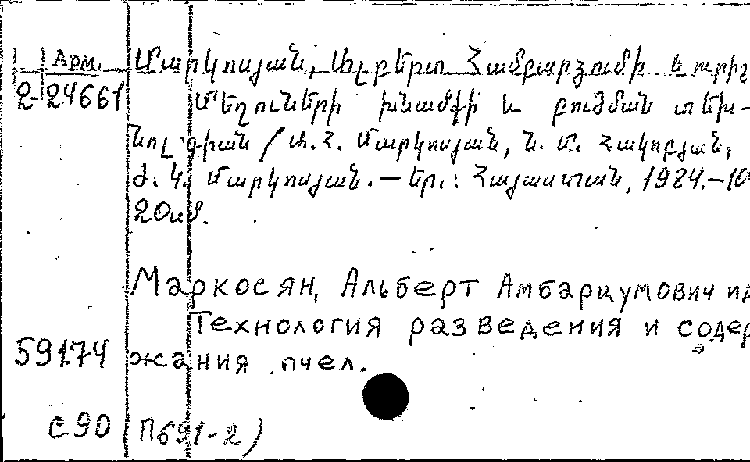 Арм. Մարկոսյան, Ալբերտ Համբարձումի և ուրիշ
2-24661 Մեղուների խնամքի և բուծման տեխ-
նոլոգիան / Ա. Հ. Մարկոսյան, Ն. Մ. Հակոբյան,
Ժ. Կ. Մարկոսյան. — Եր.: Հայաստան, 1984.—10
20սմ.
Маркосян, Альберт Амбарцумович и
Технология разведения и содер
59174 жания пчел.
с90 (П691-2)